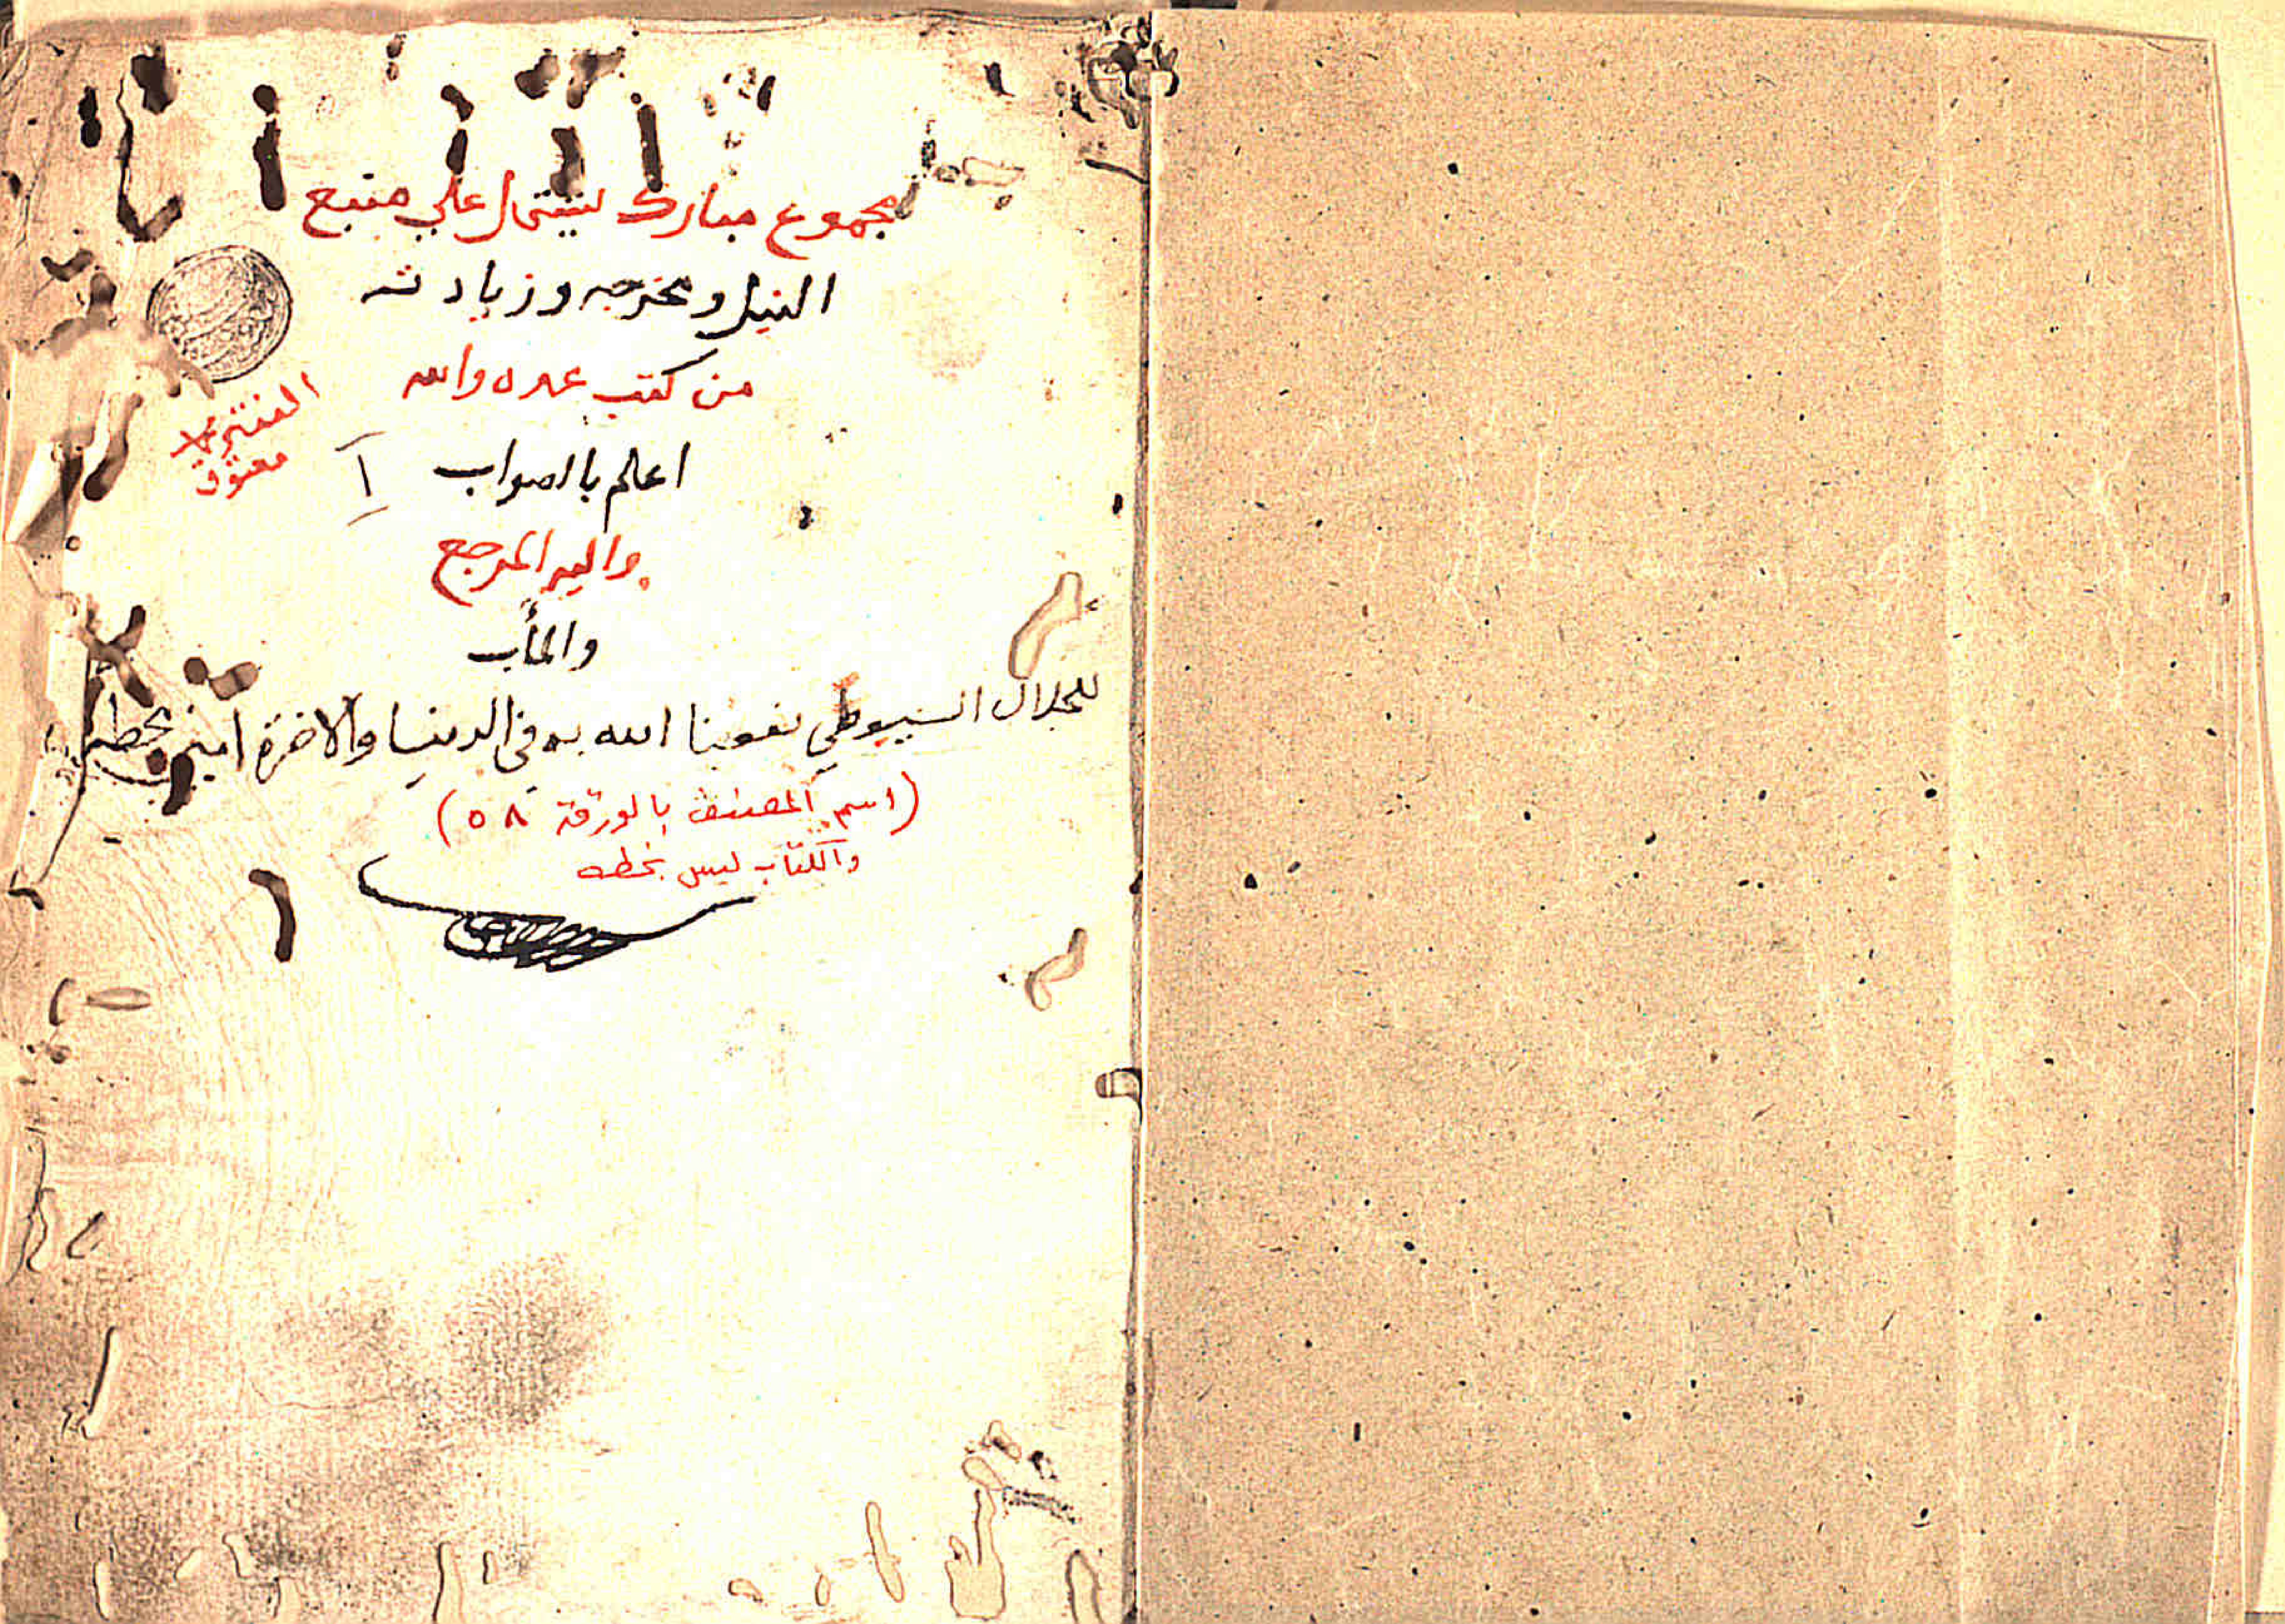 مجموع مبارك يشتمل علي منبع
النيل ومخرجه وزيادته
من كتب عده والله
اعلم بالصواب
واليه المرجع
والمأب
للجلال السيوطي نفعنا الله به في الدنيا والاخرة امين بخطه
(اسم المصنف بالورقة ٥٨)
والكتاب ليس بخطه